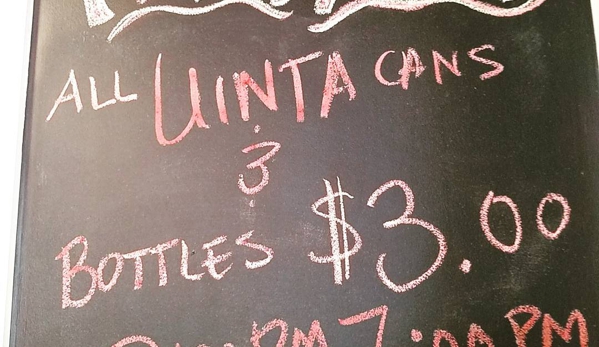 ALL UINTA CANS
&
BOTTLES $3.00
PM 7:00 PM